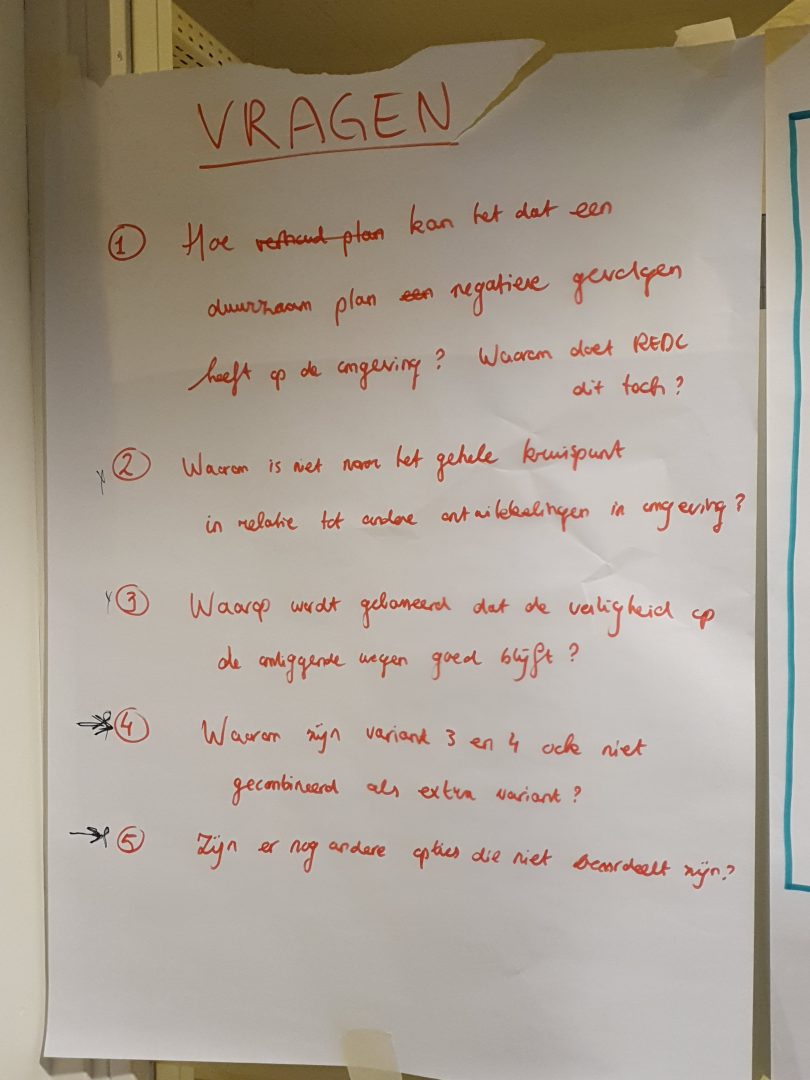 VRAGEN
1 Hoe verhoud plan kan het dat een
duurzaam plan een negatieve gevolgen
heeft op de omgeving? Waarom doet REDC
dit toch?
2 Waarom is niet naar het gehele kruispunt
in relatie tot andere ontwikkelingen in omgeving?
3 Waarop wordt gebaseerd dat de veiligheid op
de omliggende wegen goed blijft?
4 Waarom zijn variant 3 en 4 ook niet
gecombineerd als extra variant?
5 Zijn er nog andere opties die niet beoordeelt zijn?